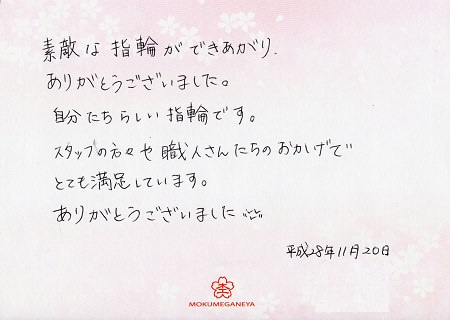 素敵な指輪ができあがり、
ありがとうございました。
自分たちらしい指輪です。
スタッフの方々や職人さんたちのおかげで
とても満足しています。
ありがとうございました
平成28年11月20日
MOKUMEGANEYA